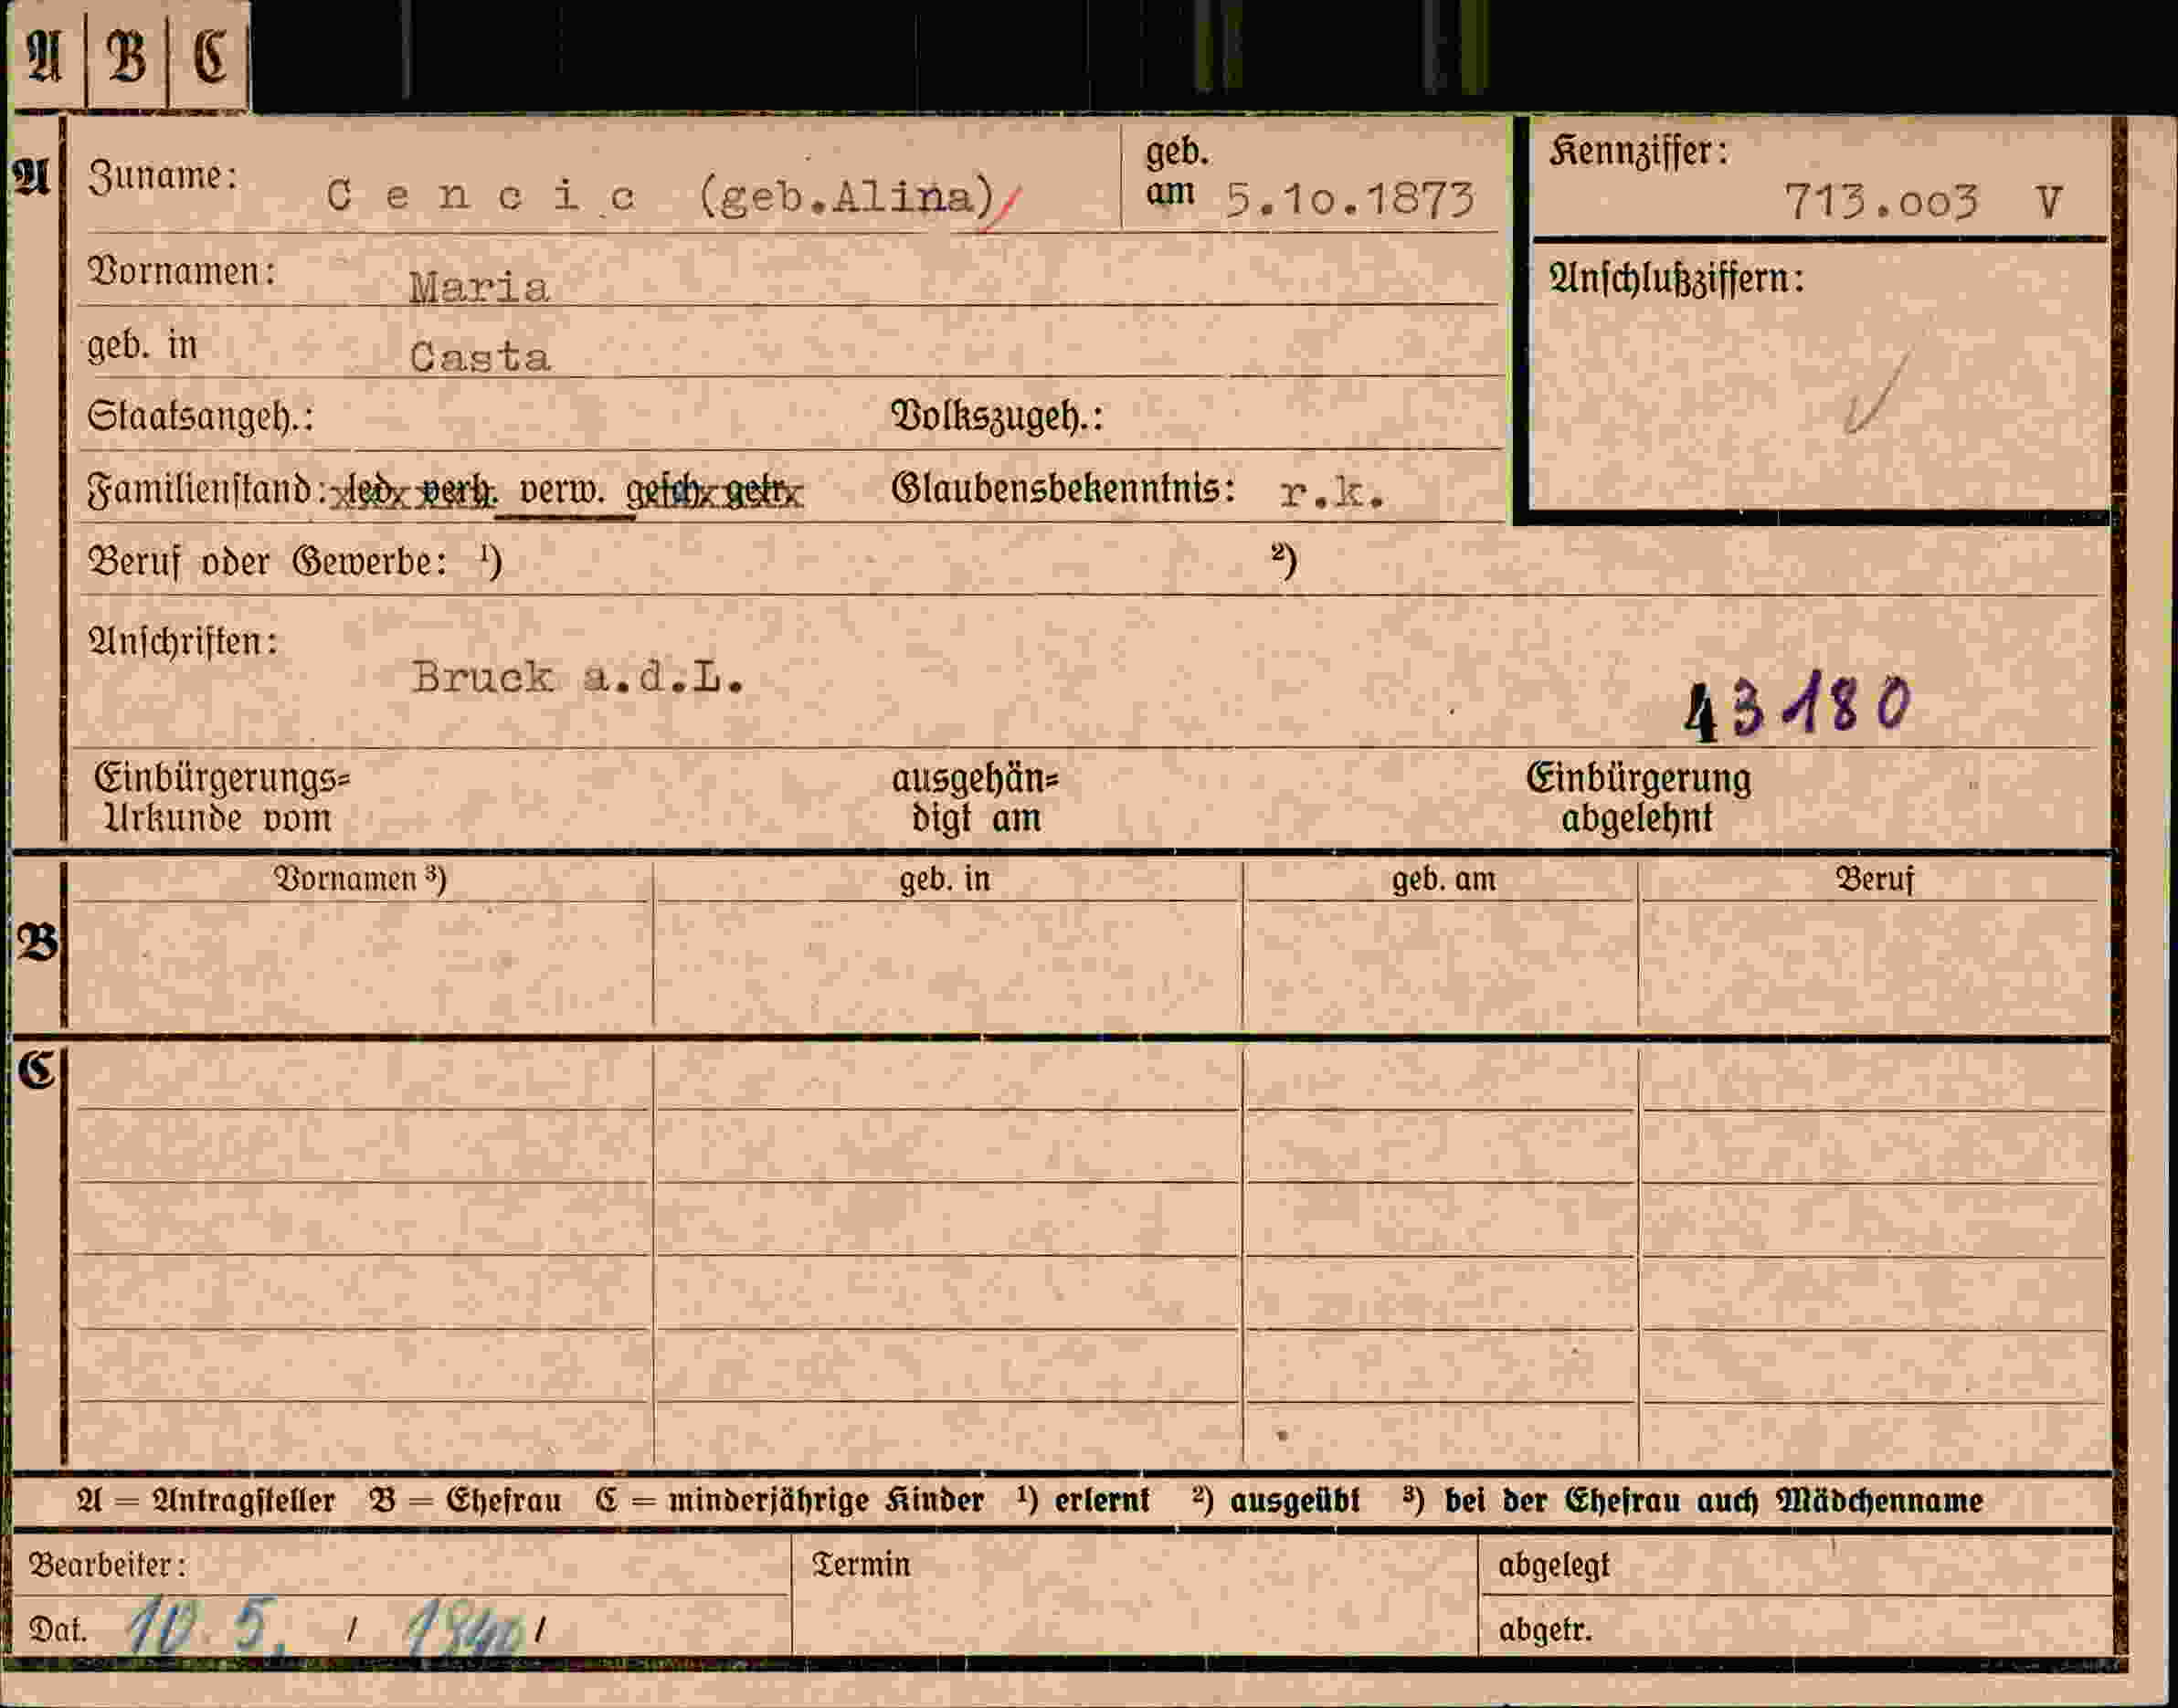 A B C
A Zuname: Cencic (geb.Alina)/ geb. am 5.10.1873 Kennziffer: 713.003 V
Vornamen: Maria Anschlußziffern:
geb. in Casta
Staatsangeh.: Volkszugeh.:
Familienstand: led. verh. verw. gesch. getr. Glaubensbekenntnis: r.k.
Beruf oder Gewerbe: ¹) ²)
Anschriften: Bruck a.d.L. 43180
Einbürgerungs= ausgehän= Einbürgerung
Urkunde vom digt am abgelehnt
Vornamen ³) geb. in geb. am Beruf
B
C
A = Antragsteller B = Ehefrau C = minderjährige Kinder ¹) erlernt ²) ausgeübt ³) bei der Ehefrau auch Mädchenname
Bearbeiter: Termin abgelegt
Dat. 10. 5. / 1940 / abgetr.